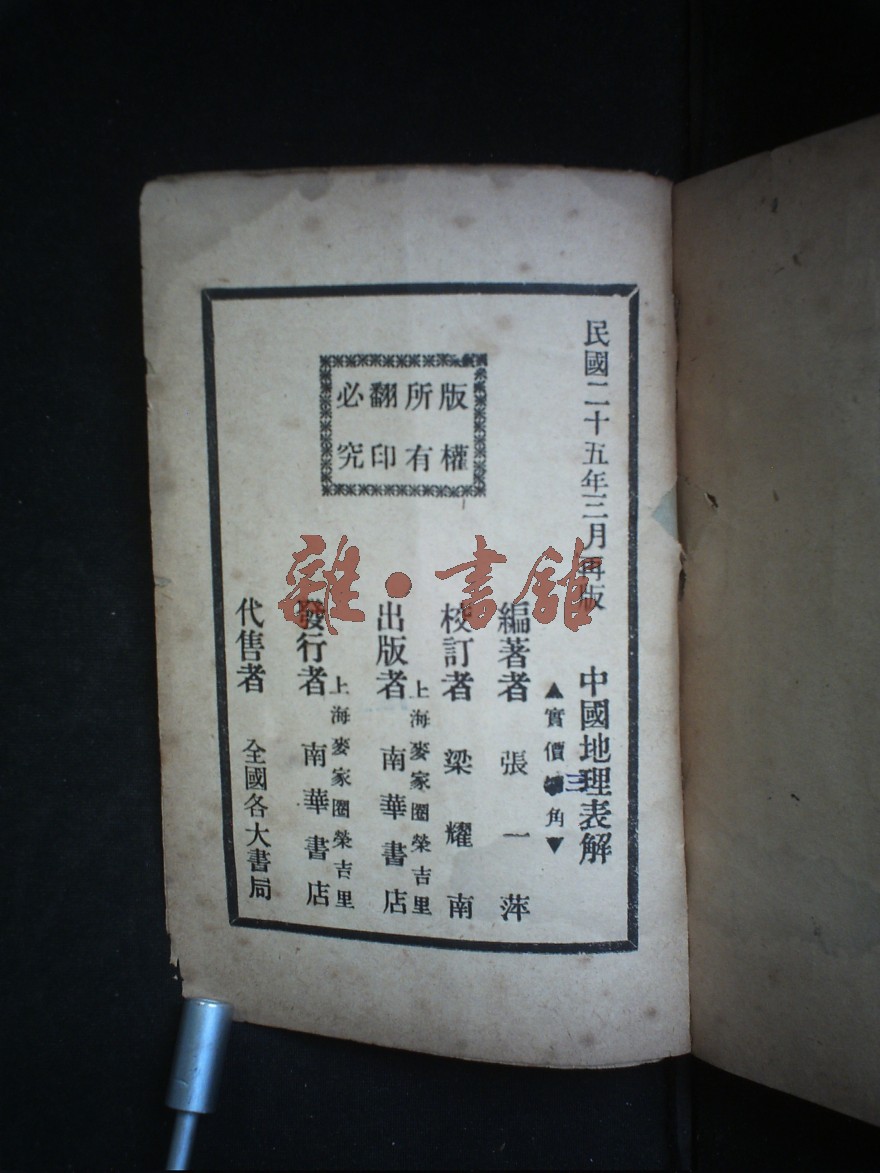 民國二十五年三月再版
中國地理表解
▲實價三角▼
編著者 張一萍
校訂者 梁耀南
上海麥家圈榮吉里
出版者 南華書店
上海麥家圈榮吉里
發行者 南華書店
代售者 全國各大書局
版權
所有
翻印
必究
雜·書館